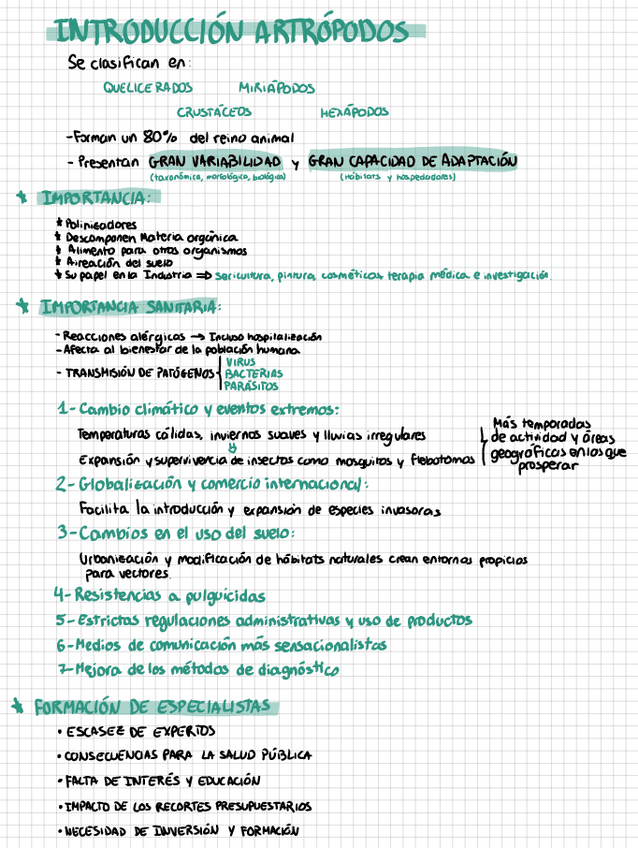 INTRODUCCIÓN ARTRÓPODOS
Se clasifican en:
QUELICERADOS MIRIÁPODOS
CRUSTÁCEOS HEXÁPODOS
-Forman un 80% del reino animal
- Presentan GRAN VARIABILIDAD y GRAN CAPACIDAD DE ADAPTACIÓN
(taxonómica, morfológica, biológica) (Hábitats y hospedadores)
* IMPORTANCIA:
* Polinizadores
* Descomponen Materia orgánica
* Alimento para otros organismos
* Aireación del suelo
* Su papel en la Industria ⇒ sericultura, pintura, cosméticos, terapia médica e investigación
* IMPORTANCIA SANITARIA:
- Reacciones alérgicas → Incluso hospitalización
- Afecta al bienestar de la población humana
- TRANSMISIÓN DE PATÓGENOS VIRUS
BACTERIAS
PARÁSITOS
1- Cambio climático y eventos extremos:
Temperaturas cálidas, inviernos suaves y lluvias irregulares
⇓
Expansión y supervivencia de insectos como mosquitos y flebotomos
Más temporadas
de actividad y áreas
geográficas en las que
prosperar
2- Globalización y comercio internacional:
Facilita la introducción y expansión de especies invasoras
3- Cambios en el uso del suelo:
Urbanización y modificación de hábitats naturales crean entornos propicios
para vectores.
4- Resistencias a pulguicidas
5- Estrictas regulaciones administrativas y uso de productos
6- Medios de comunicación más sensacionalistas
7- Mejora de los métodos de diagnóstico
* FORMACIÓN DE ESPECIALISTAS
• ESCASEZ DE EXPERTOS
• CONSECUENCIAS PARA LA SALUD PÚBLICA
• FALTA DE INTERÉS Y EDUCACIÓN
• IMPACTO DE LOS RECORTES PRESUPUESTARIOS
• NECESIDAD DE INVERSIÓN Y FORMACIÓN